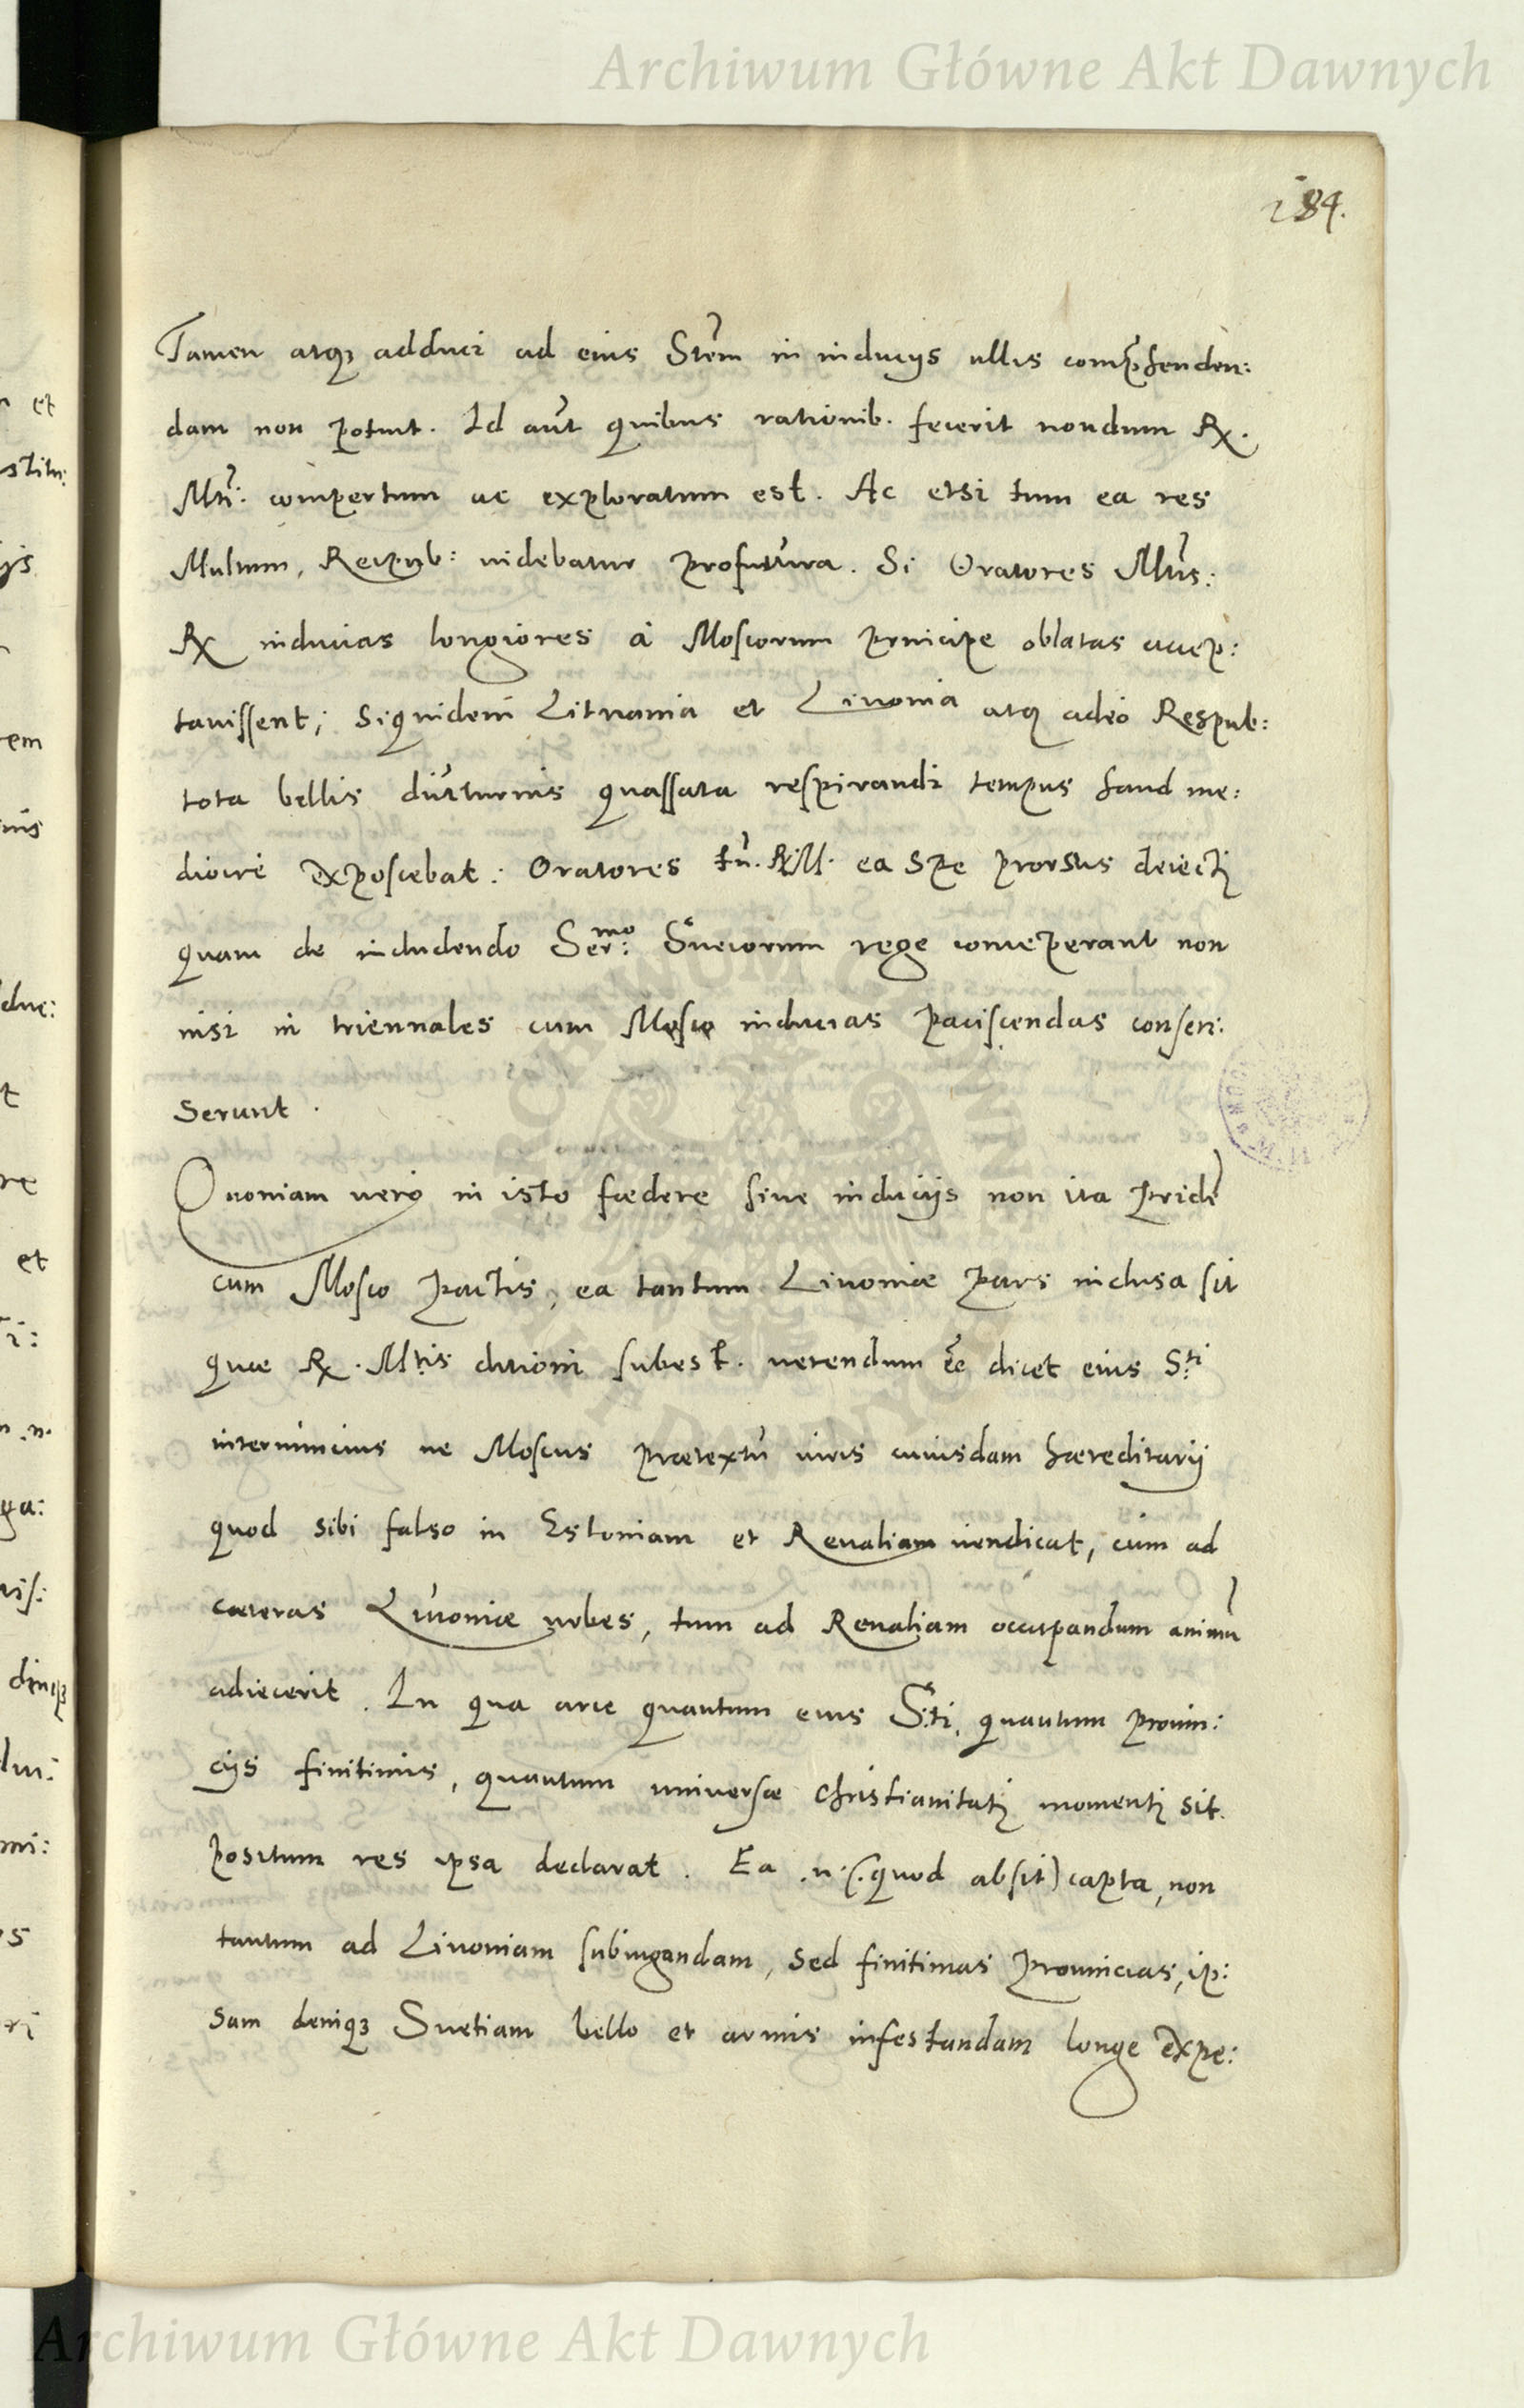 Archiwum Główne Akt Dawnych
184.
Tamen atq3 adduci ad eius Stem in inducijs ullis comprehenden:
dam non potuit. Id aut quibus rationib. fecerit nondum Rx.
Mti: compertum ac exploratum est. Ac etsi tum ea res
Multum, Reipub: uidebatur profutura. Si Oratores Mtis:
Rx inducias longiores à Moscorum principe oblatas accep:
tauissent; siquidem Lituania et Liuonia atq adeo Respub:
tota bellis diuturnis quassata respirandi tempus haud me:
diocre exposcebat: Oratores tn. RM. ea spe prorsus deiecti
quam de includendo Ser:mo Sueciorum rege conceperant non
nisi in triennales cum Mosco inducias paciscendas consen:
serunt.
Quoniam uero in isto foedere siue inducijs non ita pride
cum Mosco pactis, ea tantum Liuoniae pars inclusa sit
quae Rx. Mtis ditioni subest. uerendum ee dicet eius S:ti
internuncius ne Moscus praetextu iuris cuiusdam haereditarij
quod sibi falso in Estoniam et Reualiam uendicat, cum ad
caeteras Liuoniae urbes, tum ad Reualiam occupandum animu
adiecerit. In qua arce quantum eius S:ti, quantum prouin:
cijs finitimis, quantum uniuersae Christianitati momenti sit
positum res ipsa declarat. Ea .n. (quod absit) capta, non
tantum ad Liuoniam subiugandam, sed finitimas prouincias, ip:
sam deniq3 Suetiam bello et armis infestandam longe expe:
Archiwum Główne Akt Dawnych